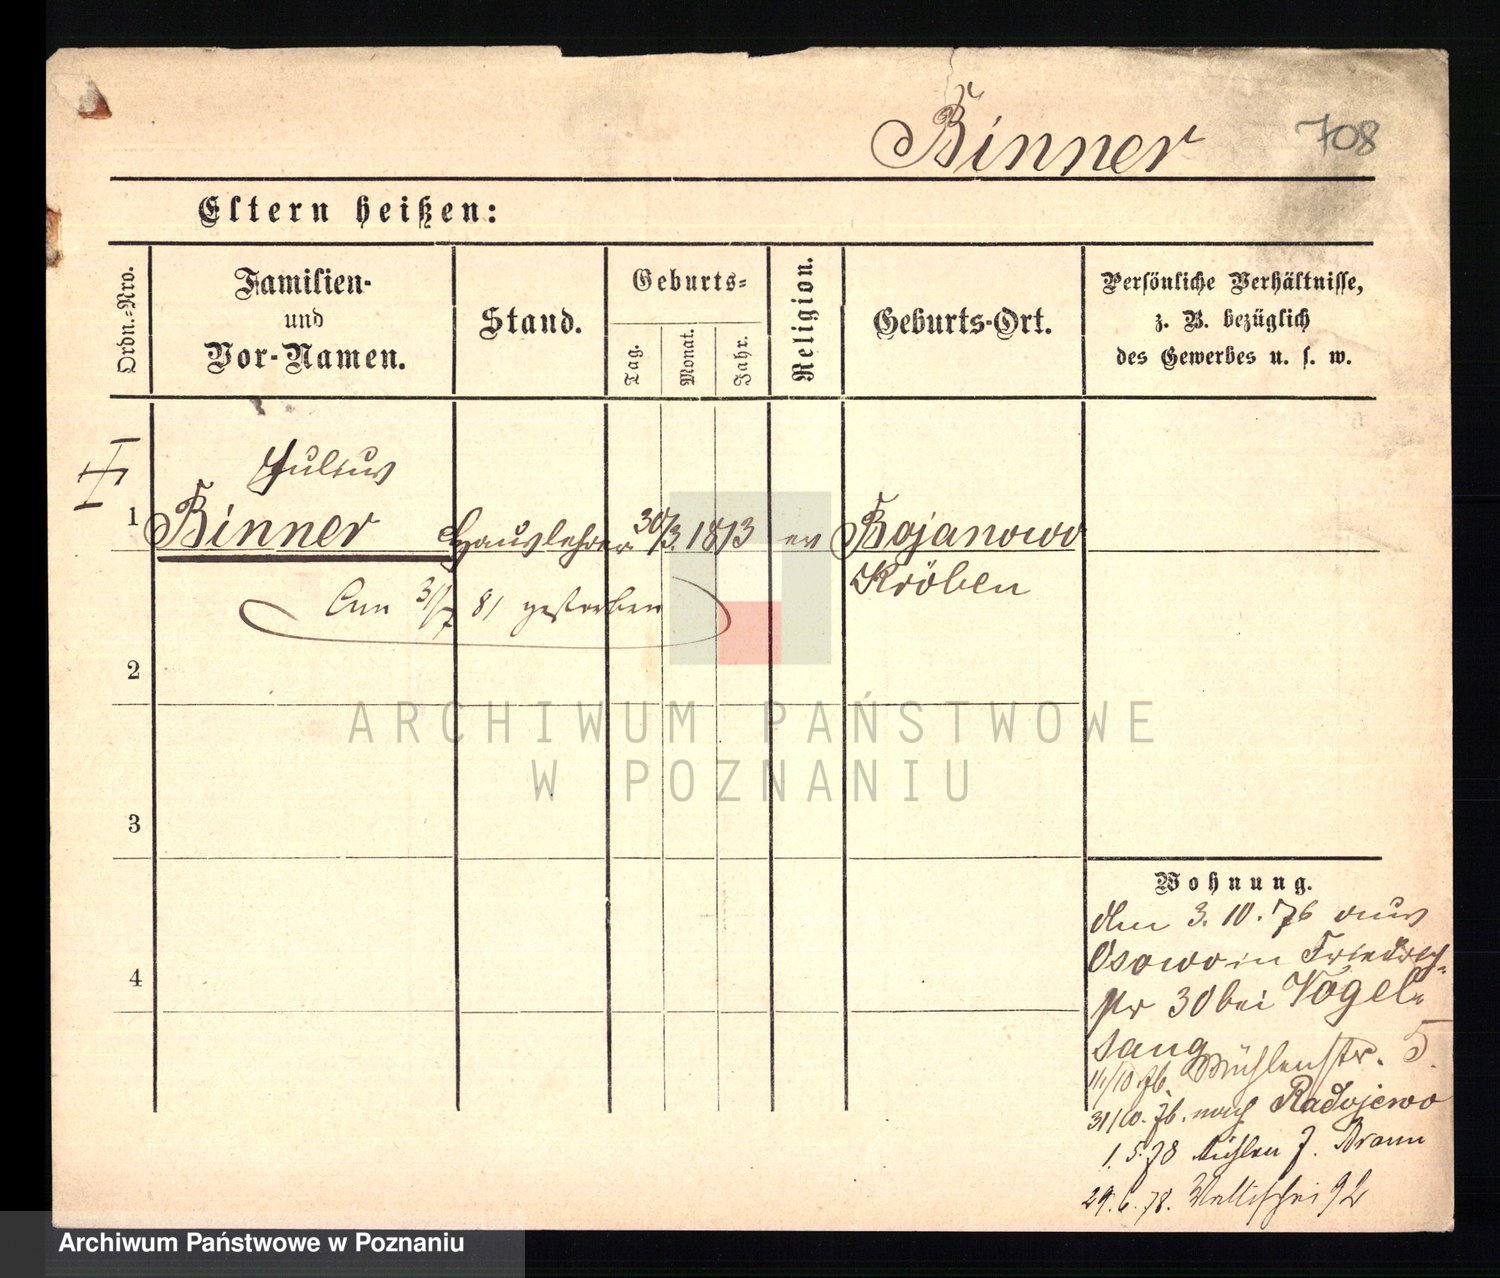 Binner
708
Eltern heißen:
Ordn.-Nro.
Familien-
und
Vor-Namen.
Stand.
Geburts-
Tag.
Monat.
Jahr.
Religion.
Geburts-Ort.
Persönliche Verhältnisse,
z. B. bezüglich
des Gewerbes u. s. w.
Julius
1 Binner Hauslehrer 30/3. 1813 ev Bojanowo
Kröben
Am 31/7 81 gestorben
2
ARCHIWUM PAŃSTWOWE
W POZNANIU
3
4
Wohnung.
den 3. 10. 76 aus
Osowo in Friedrich-
str 30 bei Vogel-
sang
11/10 76. Mühlenstr. 5.
31/10. 76. nach Radojewo
1. 5. 78 J. Braun
29. 6. 78. Wallischei 92
Archiwum Państwowe w Poznaniu